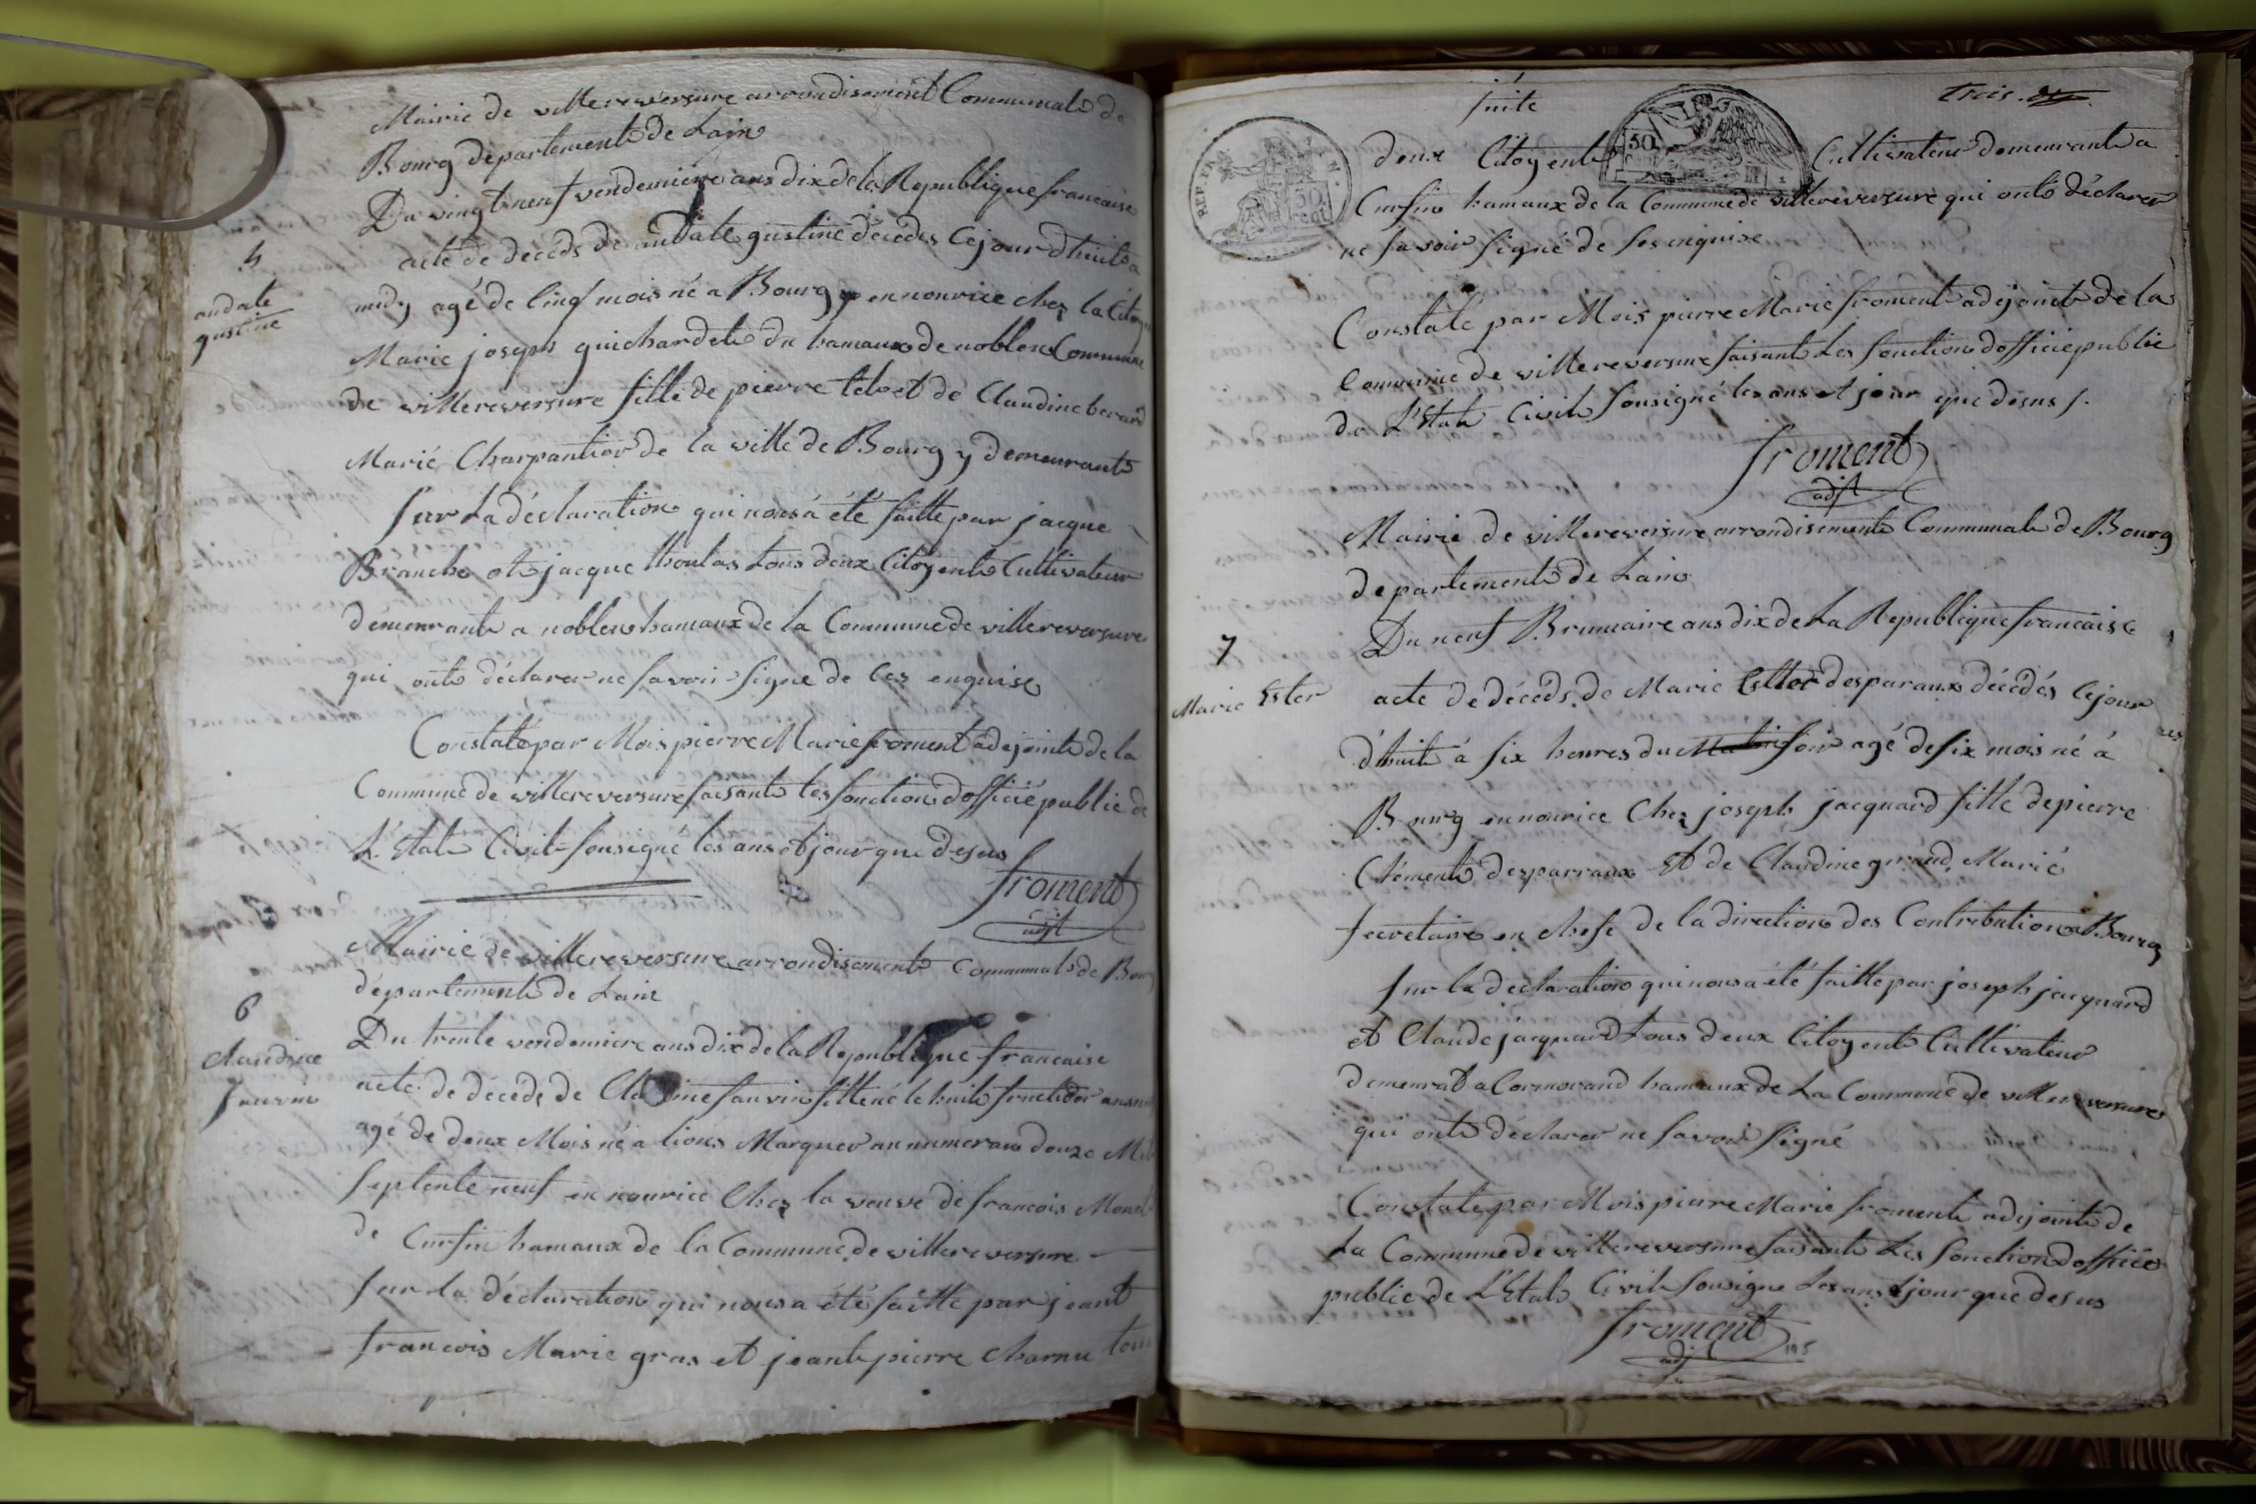 Mairie de villereversure arrondisement Communale de
Bourg département de Lain
Du vingt neuf vendemiere ans dix de la Republique francaise
5
acte de decéds de andate gustine décédés Cejour dhuit a
midy agé de Cinq mois né a Bourg en nourice chez la Citoy
andate
gustine
Marie joseph guichardet du hamaux de noblens Commune
de villereversure fille de pierre et de Claudine
Marié Charpantier de la ville de Bourg y demeurants
Sur La déclaration qui nous á été faitte par jacque
Branche et jacque thoulas tous deux Citoyents Cultivateur
démeurants a noblens hamaux de la Commune de villereversure
qui onts déclarer ne savoir signe de ces enquise
Constaté par Mois pierre Marie froment adejoints de la
Commune de villereversure faisants les fonctions dofficié public de
L'Etats Civil sousigné les ans et jour que desus
froment
adjt
Mairie de villereversure arrondisements Communals de Bourg
département de Lain
6
Claudine
Sauvin
Du trente vendemiere ans dix de la Republique francaise
acte de décéds de Claudine Sauvin fille né le huit fructidor ans
agé de deux Mois né a lions Marquer au numeraus douze
septente neuf en nourice Chez la veuve de francois
de Cursin hamaux de la Commune de villereversure
Sur la déclaration qui nous a été faitte par jeant
francois Marie gras et jeant pierre Charnu tous
suite
trois
REP. FRA
50
deux Citoyents Cultivateur demeurants a
Cursin hamaux de la Commune de villereversure qui onts déclarer
ne savoir signé de ses enquise
Constate par Mois pierre Marie froment adejoints de la
Commune de villereversure faisants les fonctions dofficié public
de L'Etats Civils sousigné les ans et jour que desus
froment
adjt
Mairie de villereversure arrondisements Communals de Bourg
departements de Lain
7
Marie Ester
Du neuf Brumaire ans dix de La Republique francaise
acte de décéds de Marie Ester desparaux décédés Cejour
d'huit á six heures du Matin soir agé de six mois né á
Bourg en nourice Chez joseph jacquard fille de pierre
Clements desparraux et de Claudine Marié
secretaire en chefe de la direction des Contributions a Bourg
sur la declaration qui nous a été faitte par joseph jacquard
et Claude jacquard tous deux Citoyents Cultivateur
demeurat a Cormorand hamaux de La Commune de villereversure
qui onts déclarer ne savoir signé
Constate par Mois pierre Marie froments adejoints de
La Commune de villereversure faisants Les fonctions dofficié
public de L'Etats Civils sousigne Les ans et jour que desus
froment
adj
195